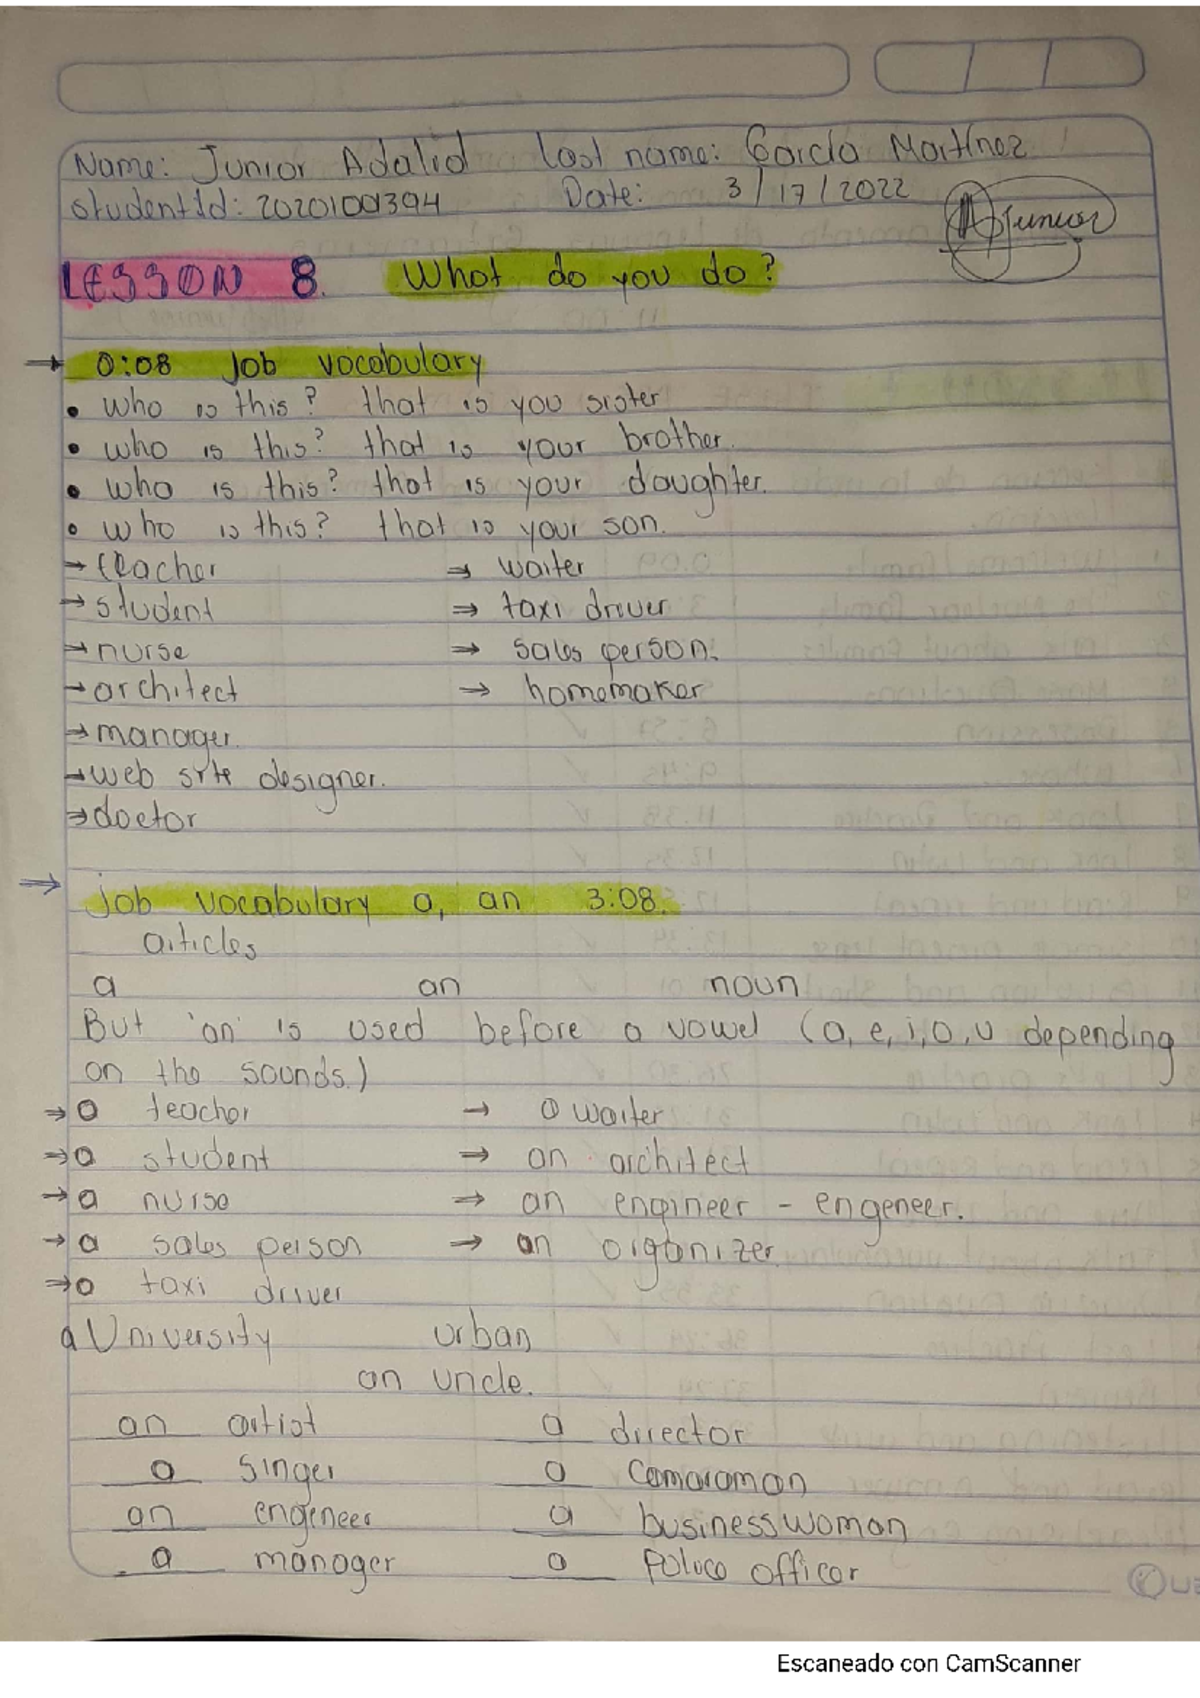 Name: Junior Adalid Last name: García Martínez
student Id: 20201001394 Date: 3/17/2022
Junior
LESSON 8. What do you do?
→ 0:08 Job vocabulary
• who is this? that is you sister
• who is this? that is your brother.
• who is this? that is your daughter.
• who is this? that is your son.
→ teacher → waiter
→ student → taxi driver
→ nurse → sales person.
→ architect → homemaker
→ manager.
→ web site designer.
→ doctor
→ job vocabulary a, an 3:08.
articles
a an noun
But 'an' is used before a vowel (a, e, i, o, u depending
on the sounds.)
→ a teacher → a waiter
→ a student → an architect
→ a nurse → an engineer - engeneer.
→ a sales person → an organizer.
→ a taxi driver
a University urban
an uncle.
an artist a director
a singer a camaraman
an engeneer a businesswoman
a manager a Police officer
Escaneado con CamScanner